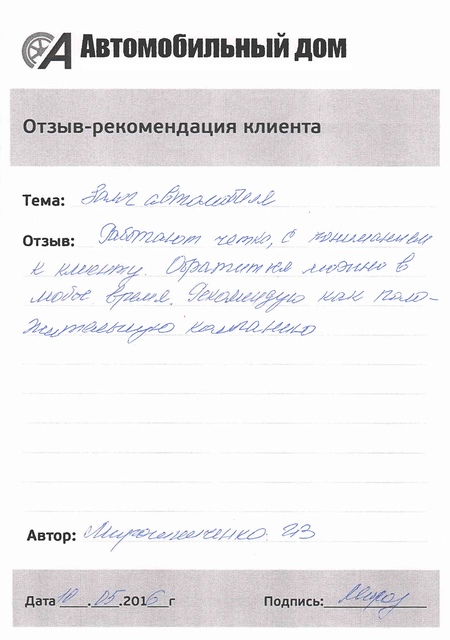 Автомобильный дом
Отзыв-рекомендация клиента
Тема: Займ автомобиля
Отзыв: Работают четко, с пониманием
к клиенту. Обратится можно в
любое время. Рекомендую как поло-
жительную компанию
Автор: Мирошниченко
Дата 10.05.2016 г Подпись: